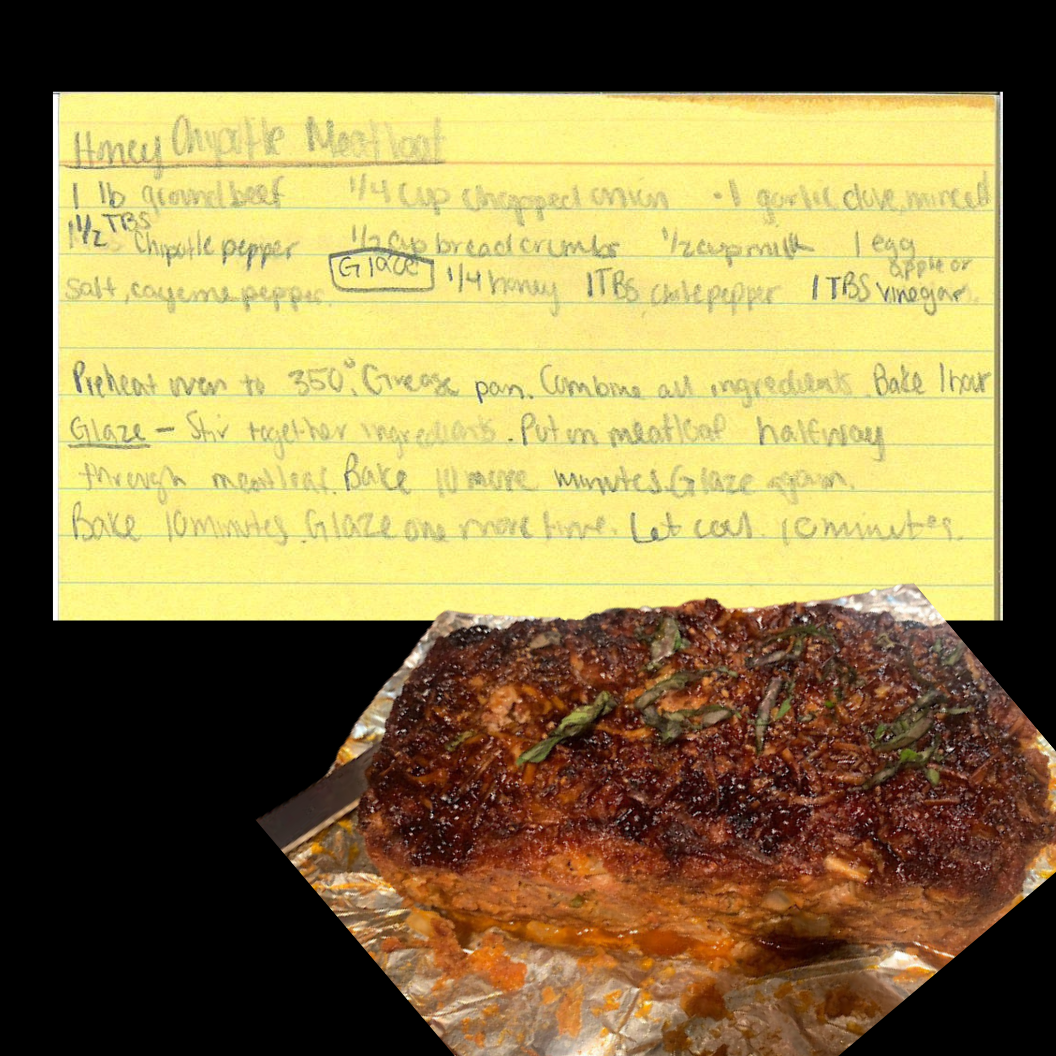 Honey Chipotle Meatloaf
1 lb ground beef 1/4 cup chopped onion • 1 garlic clove, minced
1 1/2 TBS Chipotle pepper 1/2 cup bread crumbs 1/2 cup milk 1 egg
salt, cayenne pepper. Glaze 1/4 honey 1TBS chile pepper 1 TBS apple or vinegar.
Preheat oven to 350°. Grease pan. Combine all ingredients. Bake 1 hour
Glaze – Stir together ingredients. Put on meatloaf halfway
through meatloaf. Bake 10 more minutes. Glaze again.
Bake 10 minutes. Glaze one more time. Let cool. 10 minutes.